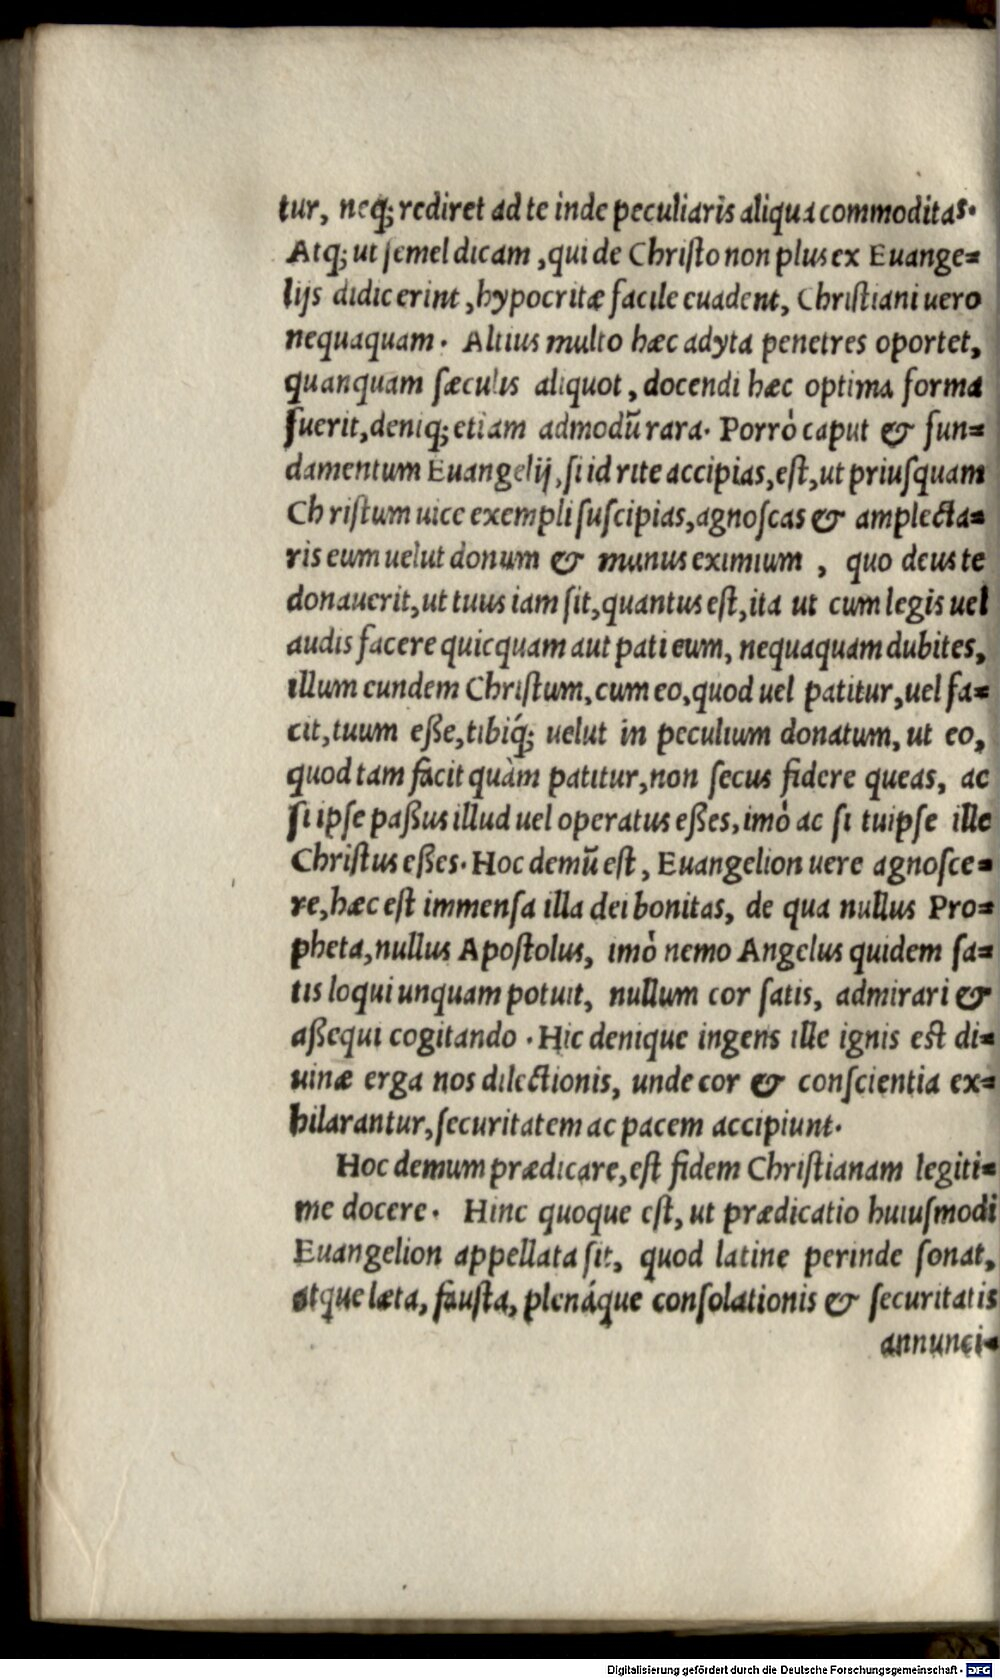 tur, neq́; rediret ad te inde peculiaris aliqua commoditas.
Atq; ut ſemel dicam, qui de Chriſto non plus ex Euange=
lijs didicerint, hypocritæ facile euadent, Chriſtiani uero
nequaquam. Altius multo hæc adyta penetres oportet,
quanquam ſæculis aliquot, docendi hæc optima forma
fuerit, deniq; etiam admodũ rara. Porrò caput & fun=
damentum Euangelij, ſi id rite accipias, eſt, ut priuſquam
Chriſtum uice exempli ſuſcipias, agnoſcas & amplecta=
ris eum uelut donum & munus eximium, quo deus te
donauerit, ut tuus iam ſit, quantus eſt, ita ut cum legis uel
audis facere quicquam aut pati eum, nequaquam dubites,
illum eundem Chriſtum, cum eo, quod uel patitur, uel fa=
cit, tuum eße, tibiq́; uelut in peculium donatum, ut eo,
quod tam facit quàm patitur, non ſecus fidere queas, ac
ſi ipſe paßus illud uel operatus eßes, imò ac ſi tuipſe ille
Chriſtus eßes. Hoc demũ eſt, Euangelion uere agnoſce=
re, hæc eſt immenſa illa dei bonitas, de qua nullus Pro=
pheta, nullus Apoſtolus, imò nemo Angelus quidem ſa=
tis loqui unquam potuit, nullum cor ſatis, admirari &
aßequi cogitando. Hic denique ingens ille ignis eſt di=
uinæ erga nos dilectionis, unde cor & conſcientia ex=
hilarantur, ſecuritatem ac pacem accipiunt.
Hoc demum prædicare, eſt fidem Chriſtianam legiti=
me docere. Hinc quoque eſt, ut prædicatio huiuſmodi
Euangelion appellata ſit, quod latine perinde ſonat,
atque læta, fauſta, plenáque conſolationis & ſecuritatis
annunci=
Digitalisierung gefördert durch die Deutsche Forschungsgemeinschaft - DFG